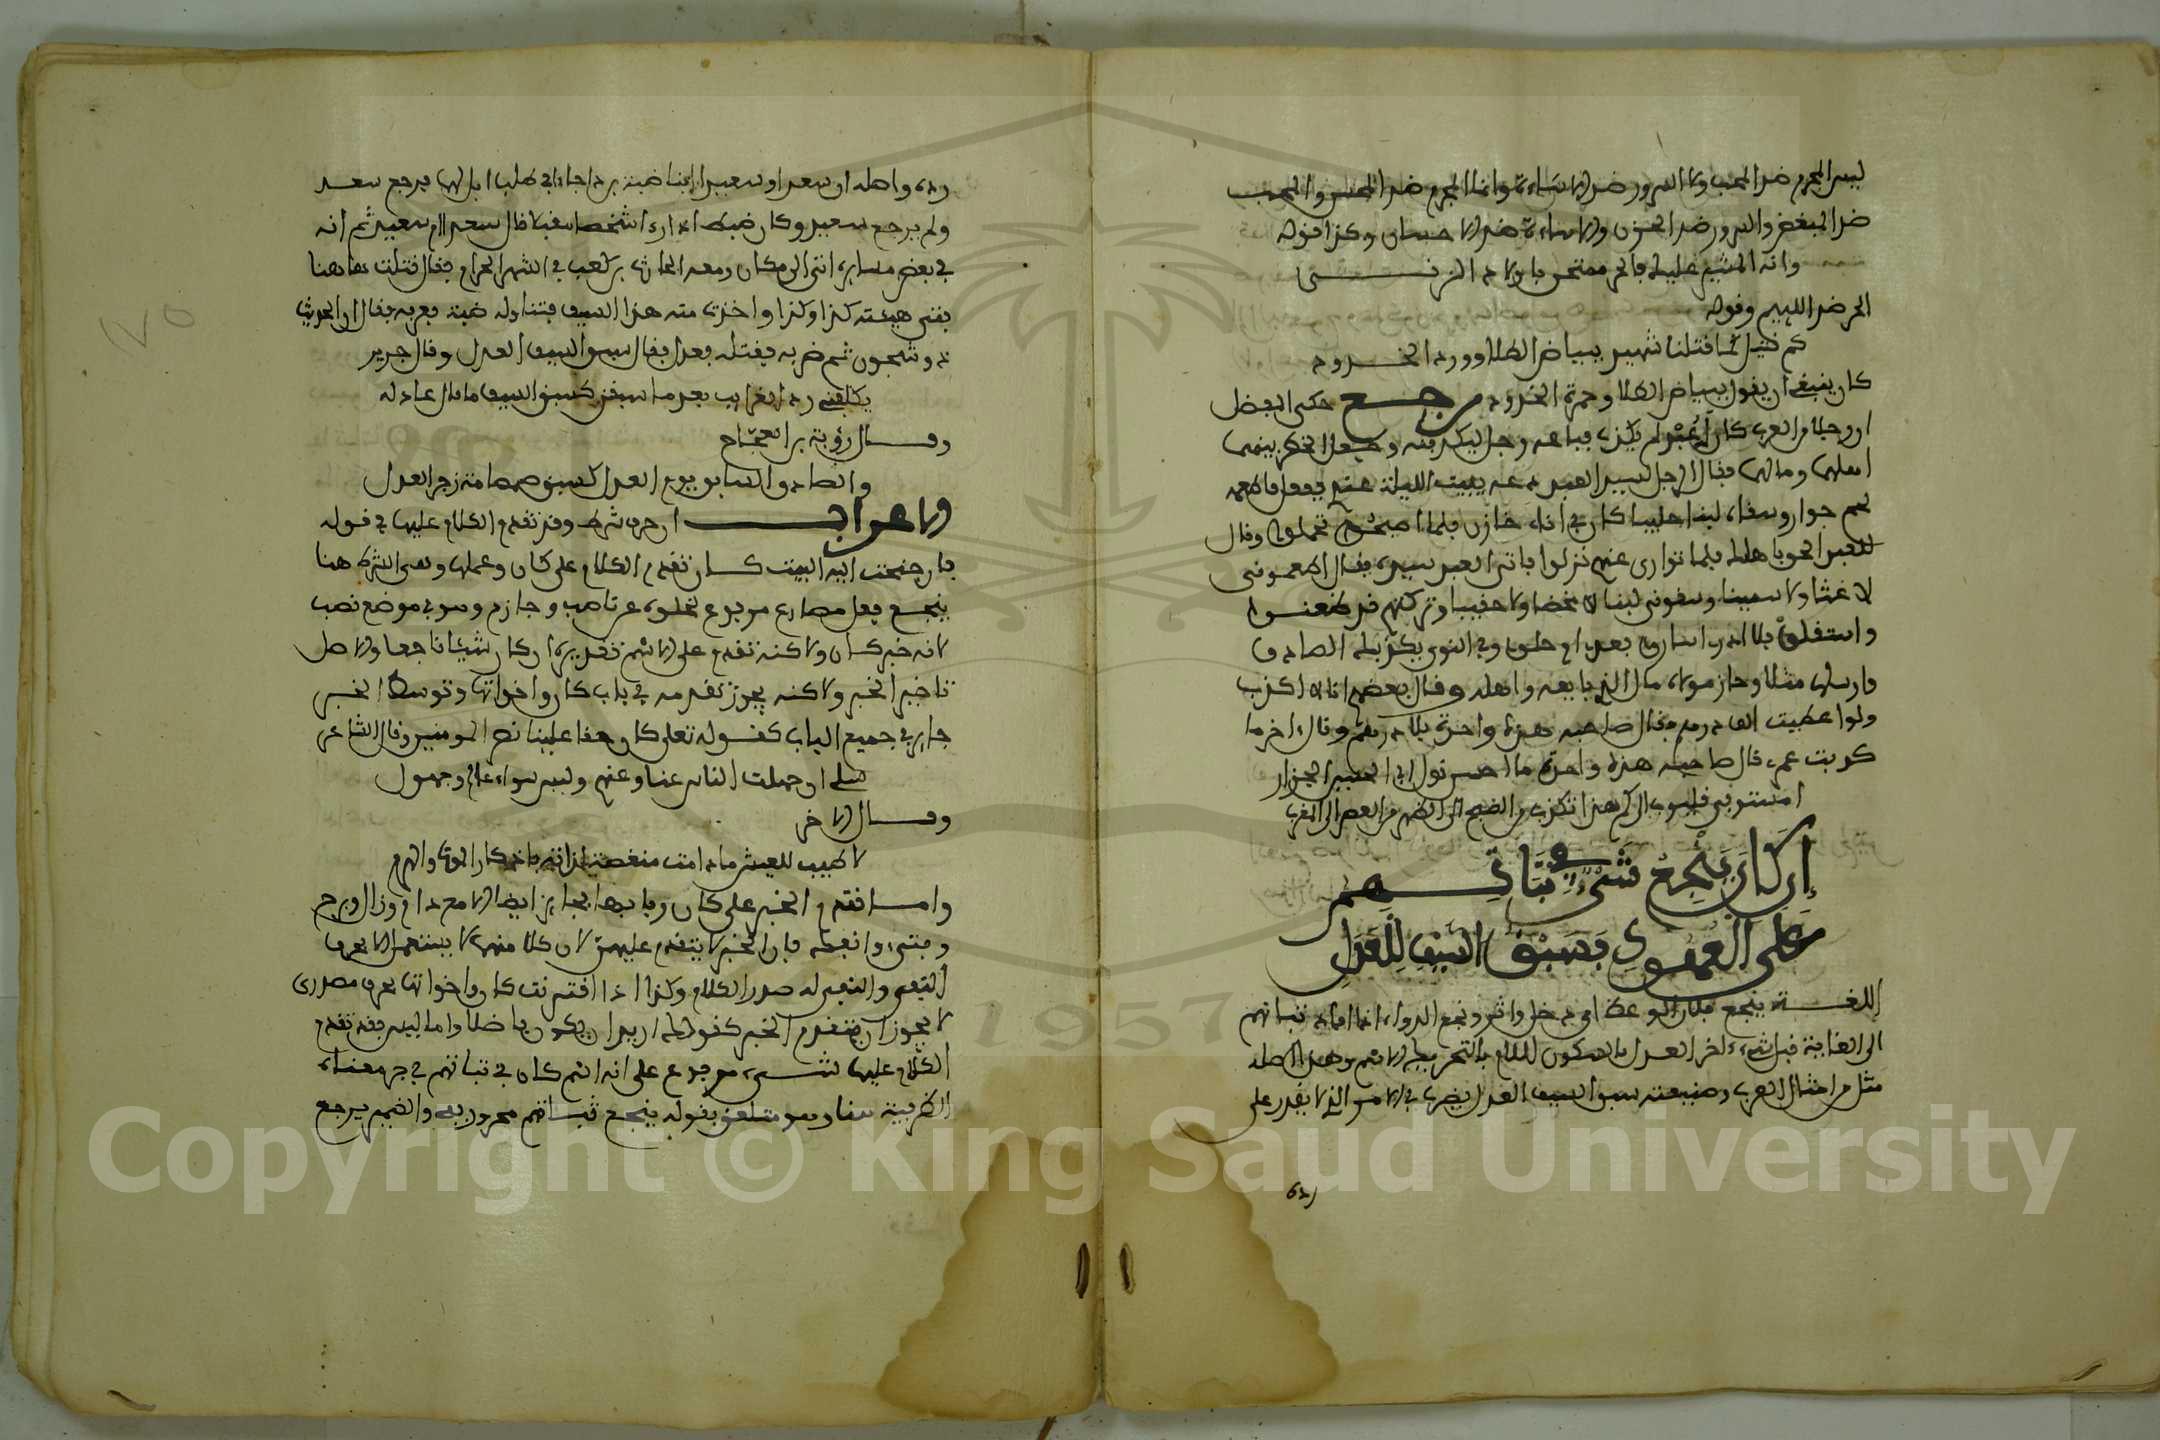 ليس المجرم ضد المحب ولا السرور ضد الاساءة وانما المجرم ضد المحسن والمحب
ضد المبغض والسرور ضد الحزن والاساءة ضد الاحسان وكذا قوله
وانه المشير عليك بالحر ممتحن باولاد الزنى
الحر ضد اللئيم وقوله
كم قتيل كما قتلنا شهيد ببياض الطلا وورد الخدود
كان ينبغي ان يقول ببياض الطلا وحمرة الخدود رجع حكى البعض
ان رجلا من العرب كان له عبد لم يكذب فبايعه رجل ليكذبنه وجعل الخطر بينهما
اهلهما ومالهما فقال الرجل لسيد العبد دعه يبيت الليلة عندي ففعل فاطعمه
لحم حوار وسقاه لبنا حليبا كان في اناء حازر فلما اصبحوا تحملوا وقال
للعبد الحق باهلك فلما توارى عنهم نزلوا فاتى العبد سيده فقال اطعموني
لا غثا ولا سمينا وسقوني لبنا لا محضا ولا حقينا وتركتهم قد ظعنوا
واستقلوا فلا ادري اساروا بعد او حلوا وفي النوى يكذبك الصادق
فارسلها مثلا وحاز مولاه مال الذي بايعه واهله وقال بعضهم انا لا اكذب
ولو اعطيت الف درهم فقال صاحبه هذه واحدة بلا درهم وقال اخر ما
كذبت عمري قال صاحبه هذه واحدة ما احسن قول ابي الحسين الجزار
من الصبح الى الظهر من العصر الى المغرب
إن كان ينجع شيء في ثباتهم
على العهود فسبق السيف للعذل
اللغة ينجع يقال نجع الوعظ اي دخل واثر ونجع الدواء اذا افاد ثباتهم
الى الغاية قبل شيء اخر العذل بالسكون الملام بالتحريك الاسم وهذا اصله
مثل من امثال العرب وضيعته سبق السيف العذل يضرب في الامر الذي لا يقدر على
رده
رده واصله ان سعدا وسعيدا ابنا ضبة بن اد خرجا في طلب ابل لهما فرجع سعد
ولم يرجع سعيد وكان ضبة اذا رءا شخصا مقبلا قال سعد ام سعيد ثم انه
في بعض مسايره اتى الى مكان ومعه الحارث بن كعب في الشهر الحرام فقال قتلت هاهنا
فتى هيئته كذا وكذا واخذت منه هذا السيف فتناوله ضبة فعرفه فقال ان الحديث
ذو شجون ثم ضربه فقتله فعدل فقال سبق السيف العذل وقال جرير
يكلفني رد الغرايب بعدما سبقن كسبق السيف ما قال عاذله
وقال رؤبة بن العجاج
والصادق السابق يوم العذل كسبق صمصامة زجر العذل
الاعراب ان حرف شرط وقد تقدم الكلام عليها في قوله
فان جنحت اليه البيت كان تقدم الكلام على كان وعملها وهي الشرط هنا
ينجع فعل مضارع مرفوع لخلوه عن ناصب وجازم وهو في موضع نصب
لانه خبر كان ولاكنه تقدم على الاسم تقديره ان كان شيئا ناجعا والاصل
تاخير الخبر ولاكنه يجوز تقدمه في باب كان واخواتها وتوسط الخبر
جايز في جميع الباب كقوله تعلى كان حقا علينا نصر المومنين وقال الشاعر
سلي ان جهلت الناس عنا وعنهم وليس سواء عالم وجهول
وقال الاخر
لا طيب للعيش ما دامت منغصة لذاته بادكار الموت والهرم
واما تقدم الخبر على كان وبابها فجايز ايضا الا مع دام وزال وبرح
وفتىء وانفك فان الخبر لا يتقدم عليهن لان كلا منها لا يستعمل الا بحرف
النفي والنفي له صدر الكلام وكذا اذا اقترنت كان واخواتها بحرف مصدري
لا يجوز ان يتقدم الخبر كقولك اريد ان يكون فاضلا واما ليس فقد تقدم
الكلام عليها شيء مرفوع على انه اسم كان في ثباتهم في حرف معناه
الظرفية هنا وهو متعلق بقوله ينجع ثباتهم مجرور بفي والضمير يرجع